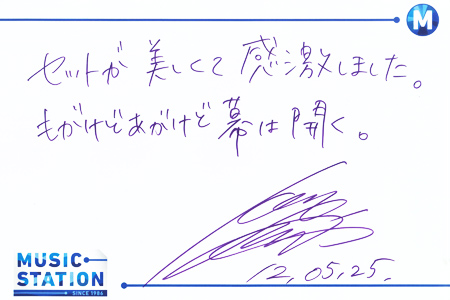 M
セットが美しくて感激しました。
もがけどあがけど幕は開く。
12.05.25.
MUSIC
STATION
SINCE 1986